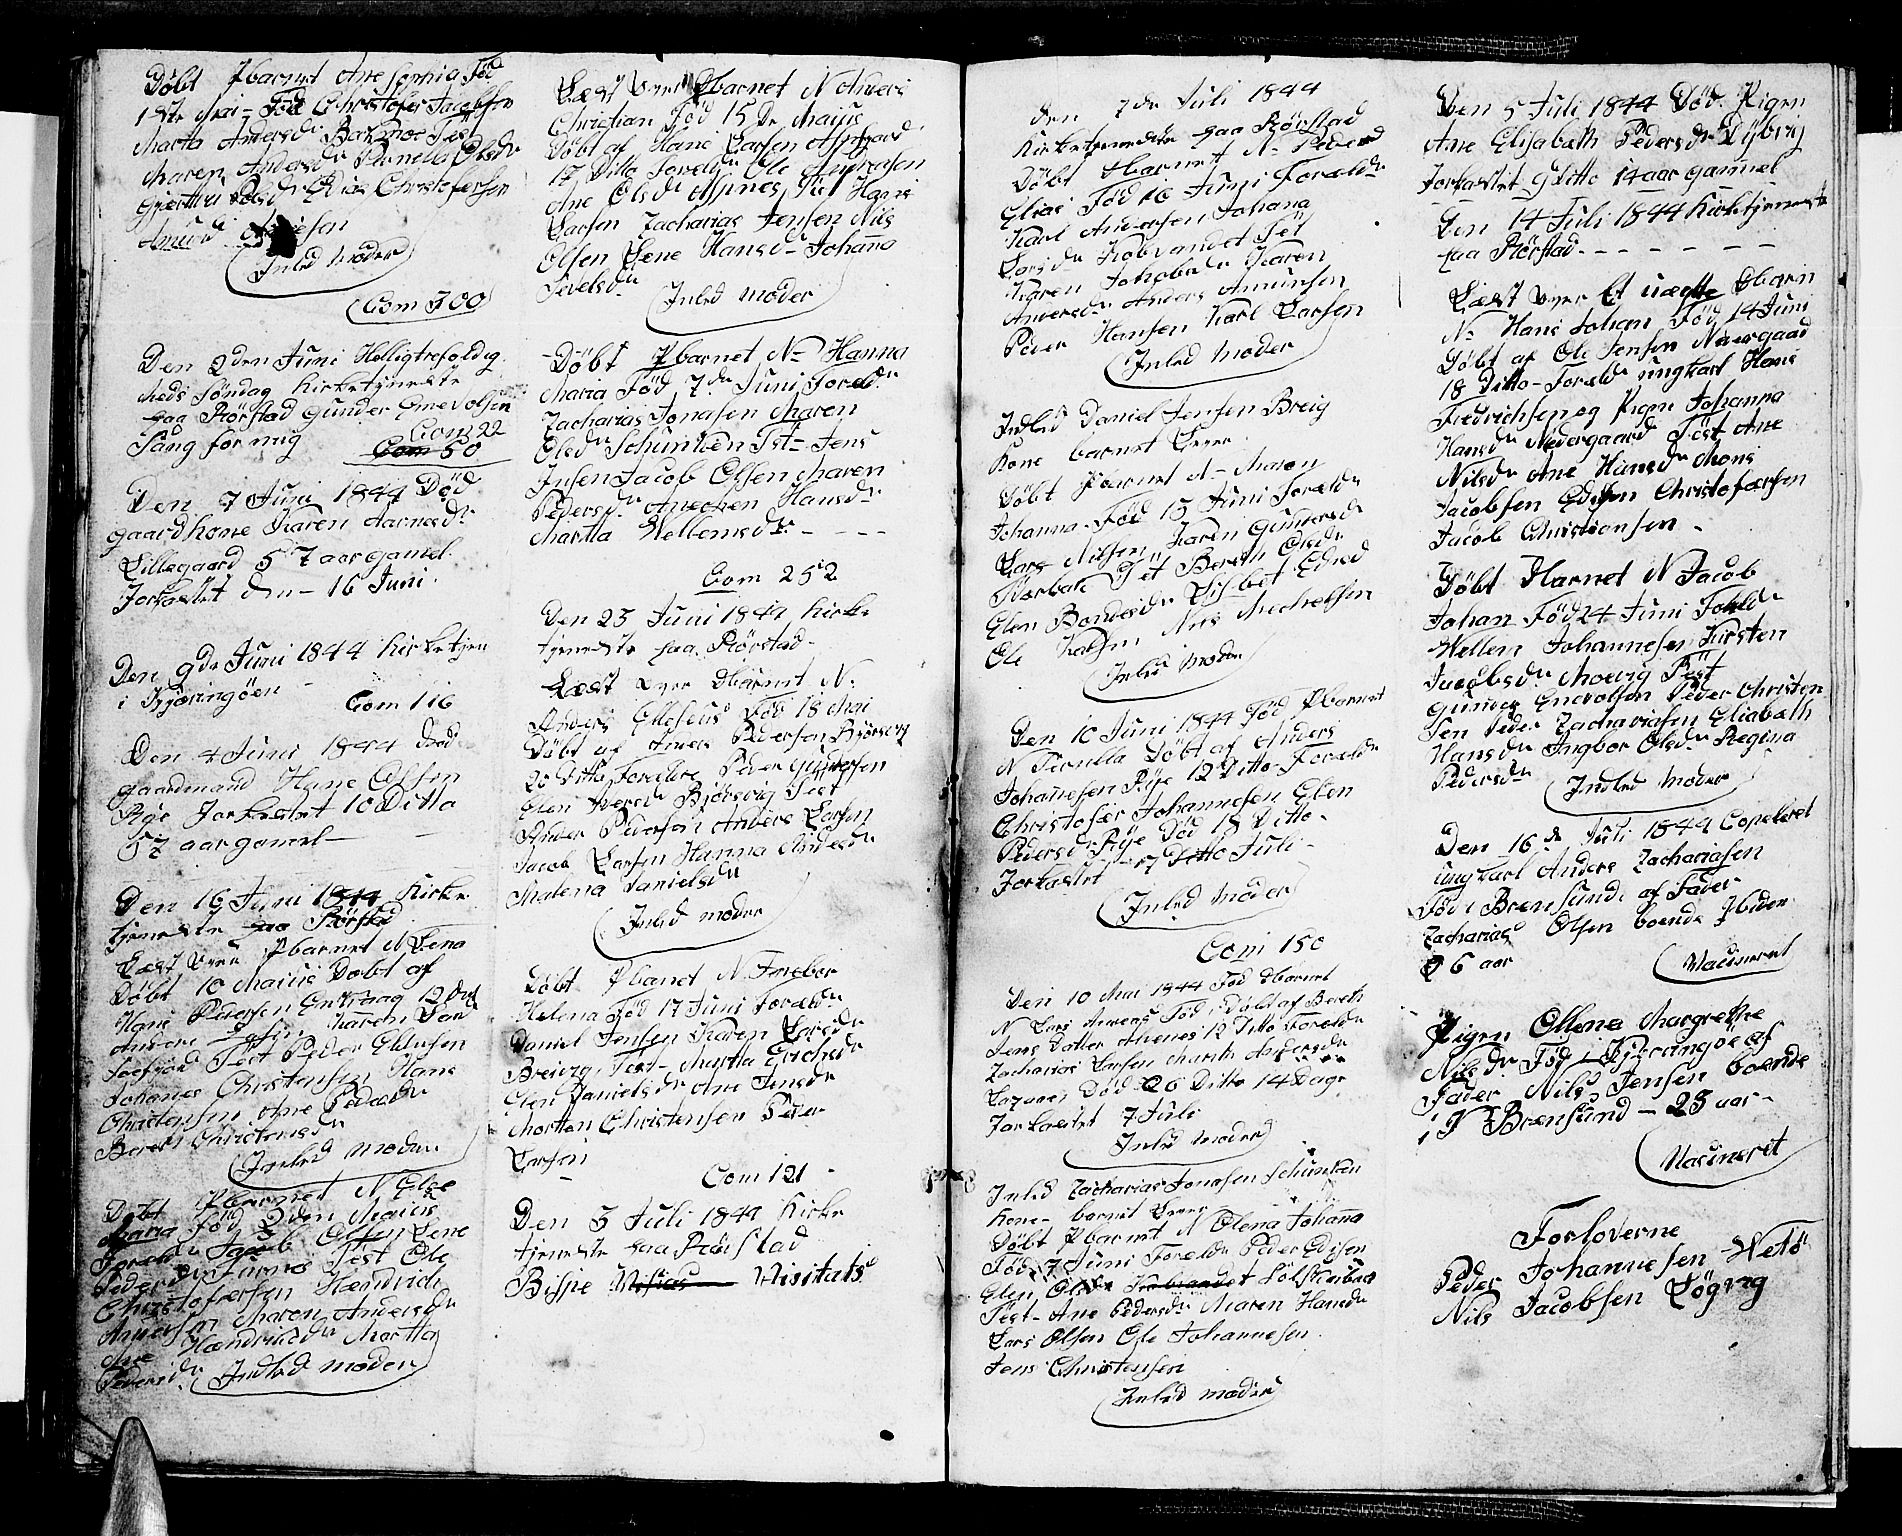 Døbt Pbarnet Ane Sophia Fød
1ste Mai - Fød Christofer Jacobsen
Marta Andersdr Bakmoe Test
Maren Andersdr Pernella Olsdr
Gjertru Olsdr Elias Christofersen
Amund
Inled Moder
Com 300
Den 2den Juni Helligtrefoldig
heds Søndag Kirketjeneste
paa Rørstad Gunder Enevolsen
Sang for mig Com 22
Com 50
Den 7 Juni 1844 Død
gaardkone Karen Aarnesdr
Lillegaard 57 aar gamel
Jorkastet den - 16 Juni
Den 9de Juni 1844 Kirketjen
i Kjæringøen
Com 116
Den 4 Juni 1844 døde
gaardmand Hans Olsen
Røje Jorkastet 10 Ditto
57 aar gamel -
Den 16 Juni 1844 Kirke
tjeneste paa Rørstad
Læst over Pbarnet N Lena
Døbt 10 Maius Døbt af
Hans Pedersen 12 Dit
Anders Karen Lars
Test Peder Ellefsen
Johanes Christensen Hans
Christensen Ane Pedersdr
Beret Christensdr
Inled Moder
Døbt Pbarnet N Else
Maria Fød 2den Maius
Foreldr Jacob Olsen Lene
Pedersdr Furnes Test Ole
Christofersen Hændrich
Andersen Maren Andersdr
Ane Hændrichsdr Martha
Pedersdr Indled moder
Læst over Dbarnet N Anders
Christian Fød 15de Maius
Døbt af Hans Larsen
17 Ditto Foreldr Ole Andreasen
Ane Olsdr Test Hans
Larsen Zacharias Jensen Nils
Olsen Lene Hansdr Johana
Sevelsdr
Inled moder
Døbt Pbarnet N- Hanna
Maria Fød 7de Juni Foreldr
Zacharias Jonasen Maren
Olsdr Schunken Tst- Jens
Jensen Jacob Olsen Maren
Pedersdr Anechen Hansdr
Martha Wellemsdr - - - -
Com 252
Den 23 Juni 1844 Kirke
tjeneste paa Rørstad
Læst over Dbarnet N.
Anders Elleseus Fød 18 Mai
Døbt af Anders Pedersen Bjørsvig
20 Ditto Foreldre Peder Gundersen
Elen Iversdr Bjørsvig Test
Ander Pedersen Anders Larsen
Jacob Larsen Hanna Andersdr
Malena Danielsdr
Inled moder
Døbt Pbanet N. Ingebor
Helena Fød 17 Juni Foreldr
Daniel Jensen Karen Larsdr
Breivig Test- Martha Erichsdr
Elen Danielsdr Ane Jensdr
Morten Christensen Peder
Larsen
Com 121
Den 3 Juli 1844 Kirke
tjeneste paa Rørstad
Bispe Visitats
den 7de Juli 1844
Kirketjeneste paa Rørstad
Døbt Dbarnet N- Peder
Elias Fød 16 Juni Foreldr
Karl Andersen Johana
Larsdr Kobvandet Tst
Karen Johansdr Karen
Andersdr Anders Amunsen
Peder Hansen Karl Larsen
Inled Moder
Inled Daniel Jensen Breig
Kone barnet Lever
Døbt Pbarnet N- Maren
Johanna Fød 15 Juni Foreldr
Lars Nilsen Karen Gundersdr
Tørbak Tst Bereth Olsdr
Elen Bondesdr Lisbet Edisd
Ole Nils Michelsen
Inled Moder
Den 10 Juni 1844 Fød Pbarnet
N Pernilla Døbt af Anders
Johannesen Røje 12 Ditto Foreldr
Christofer Johannesen Elen
Pedersdr Røje Død 18 Ditto
Jorkastet 7 Ditto Juli
Inled Moder
Com 150
Den 10 Mai 1844 Fød Dbarnet
N Lars Andreas Fød Døbt af Bereth
Jens Datter 12 Ditto Foreldr
Zacharias Larsen Marith Andersdr
Død 26 Ditto 14 Dage
Jorkastet 7 Juli
Inled Moder
Inled Zacharias Jonasen Schunken
Kone- barnet Lever
Døbt Pbarnet N Elena Johanna
Fød 7 Juni Foreldr Peder Edisen
Elen Olsdr
Test- Ane Pedersdr Maren Hansdr
Lars Olsen Ole Johannesen
Jens Christensen
Inled moder
Den 5 Juli 1844 Død Pigen
Ane Elisabeth Pedersdr Dybvig
Jorkastet 9 Ditto 14 aar gammel
Den 14 Juli 1844 Kirketjeneste
paa Rørstad - - - - - -
Læst over Et uægte Dbarn
N- Hans Johan Fød 14 Juni
Døbt af Ole Jensen Nedergaard
18 Ditto- Foreldr ungkarl Hans
Fredrichsen og Pigen Johanna
Hansdr Nedergaard Test Ane
Nilsdr Ane Hansdr Mons
Jacobsen Edisen Christofersen
Jacob Christiansen -
Døbt Dbarnet N Jacob
Johan Fød 24 Juni Foreldr
Wellem Johannesen Kirsten
Jacobsdr Moevig Test
Gunder Enevolsen Peder Christen
sen Peder Zachariasen Elisabeth
Hansdr Ingbor Olsdr Regina
Pedersdr
Indled Moder
Den 16de Juli 1844 Copeleret
ungkarl Anders Zachariasen
Fød i Brensund af Fader
Zacharias Olsen boende Ibiden
26 aar
Vacineret
Pigen Ellene Margrethe
Nilsdr Fød i Kjæringøe af
Fader Nils Jensen boende
i N Brensund - 23 aar -
Vacineret
Forloverne
Peder Johannesen Wetø
Nils Jacobsen Løgvig